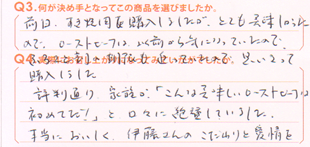 Q3.何が決め手となってこの商品を選びましたか。
前回、すき焼用を購入しましたが、とても美味しかった
ので、ローストビーフは以前から気になっていたので、
思いきって
購入しました
評判通り、家族が「こんな美味しいローストビーフは
初めてだ!」と口々に絶賛していました。
本当においしく、伊藤さんのこだわりと愛情を